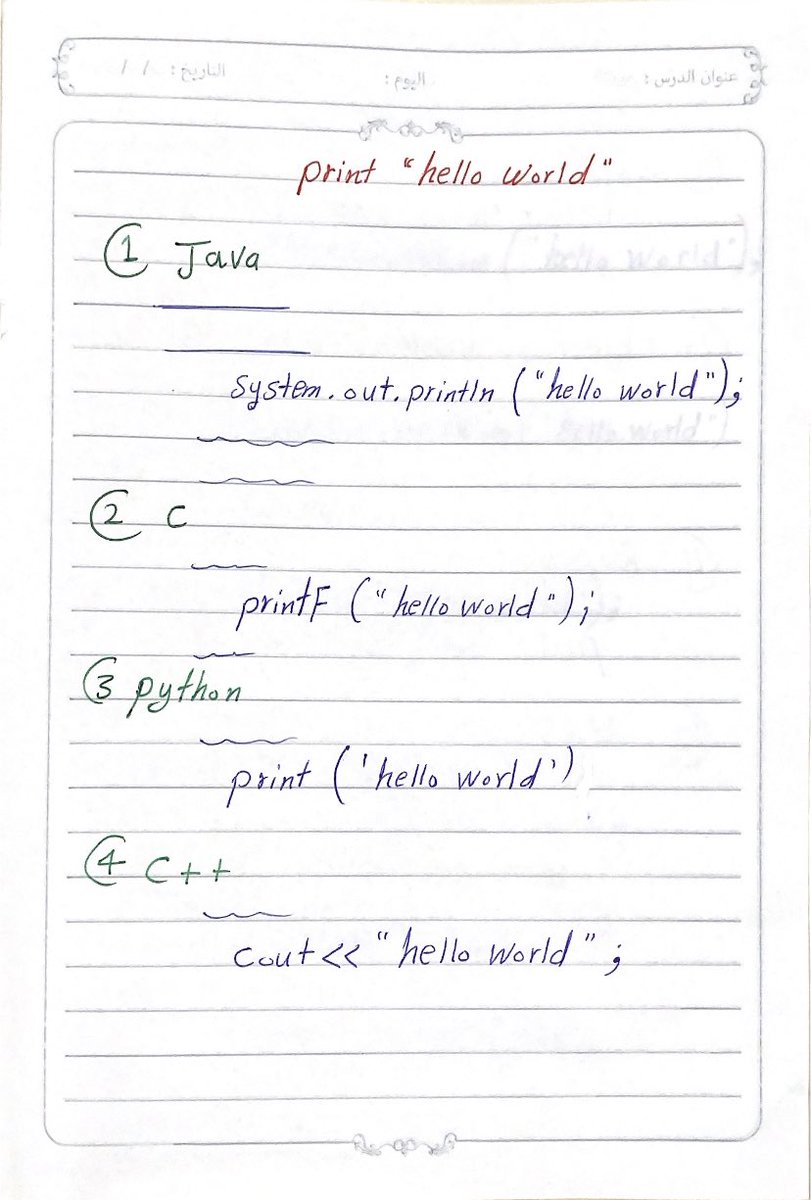 عنوان الدرس : اليوم : التاريخ : / /
print "hello world"
1 Java
system.out.println ("hello world");
2 C
printF ("hello world");
3 python
print ('hello world')
4 C++
cout<< "hello world" ;